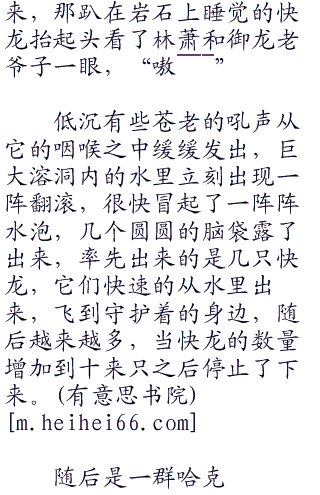 来，那趴在岩石上睡觉的快
龙抬起头看了林萧和御龙老
爷子一眼，“嗷——”
低沉有些苍老的吼声从
它的咽喉之中缓缓发出，巨
大溶洞内的水里立刻出现一
阵翻滚，很快冒起了一阵阵
水泡，几个圆圆的脑袋露了
出来，率先出来的是几只快
龙，它们快速的从水里出
来，飞到守护着的身边，随
后越来越多，当快龙的数量
增加到十来只之后停止了下
来。(有意思书院)
[m.heihei66.com]
随后是一群哈克